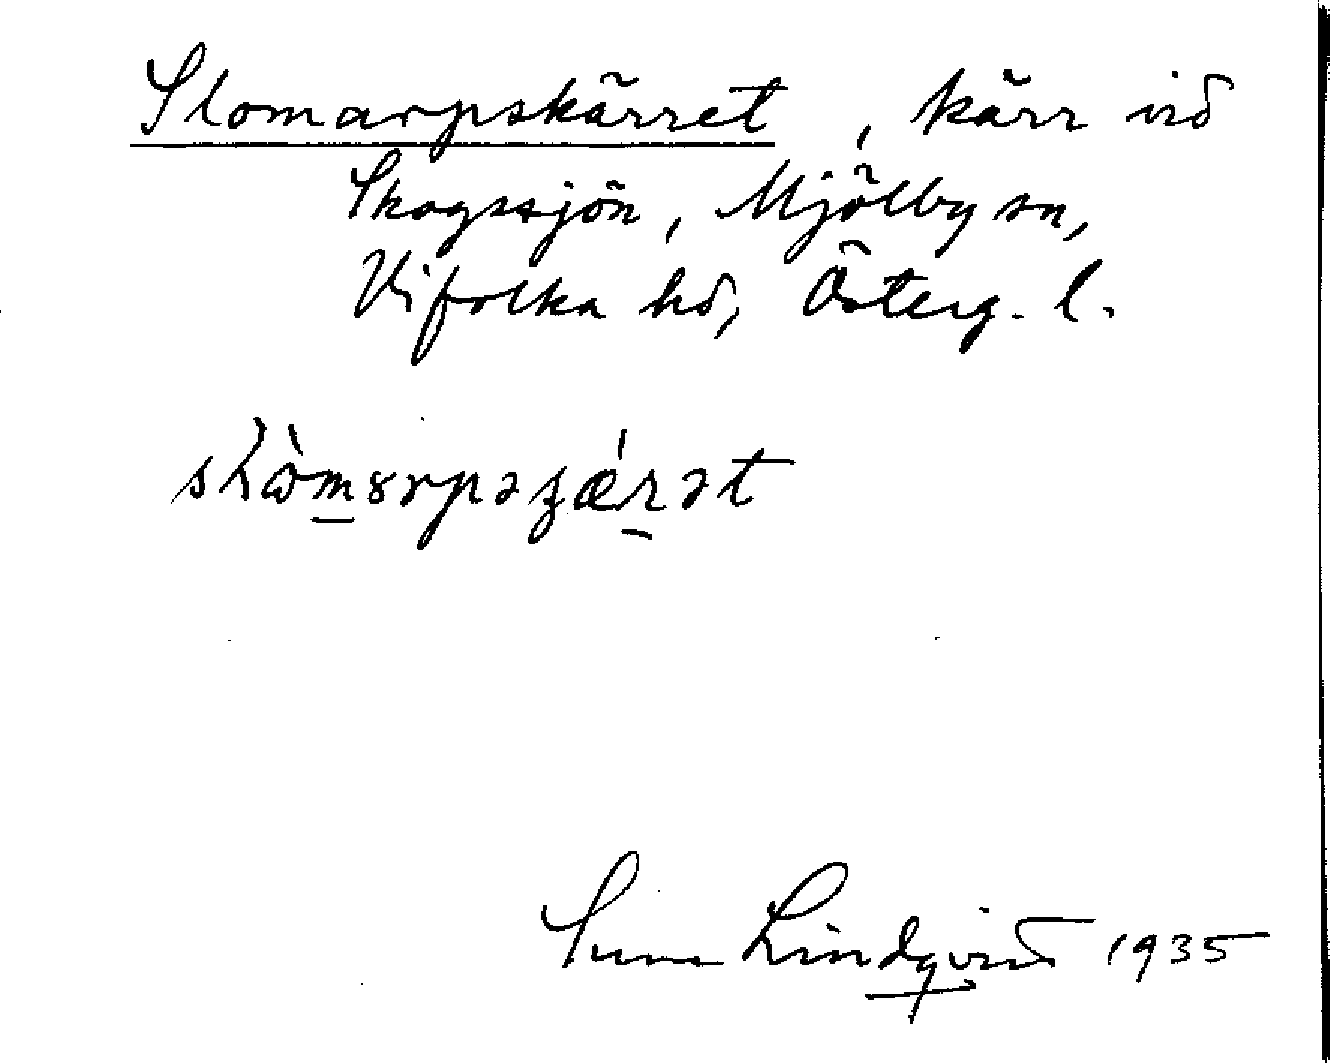 Slomarpskärret, kärr vid
Skogssjön, Mjölby sn,
Vifolka hd, Österg. l.
Sune Lindqvist 1935